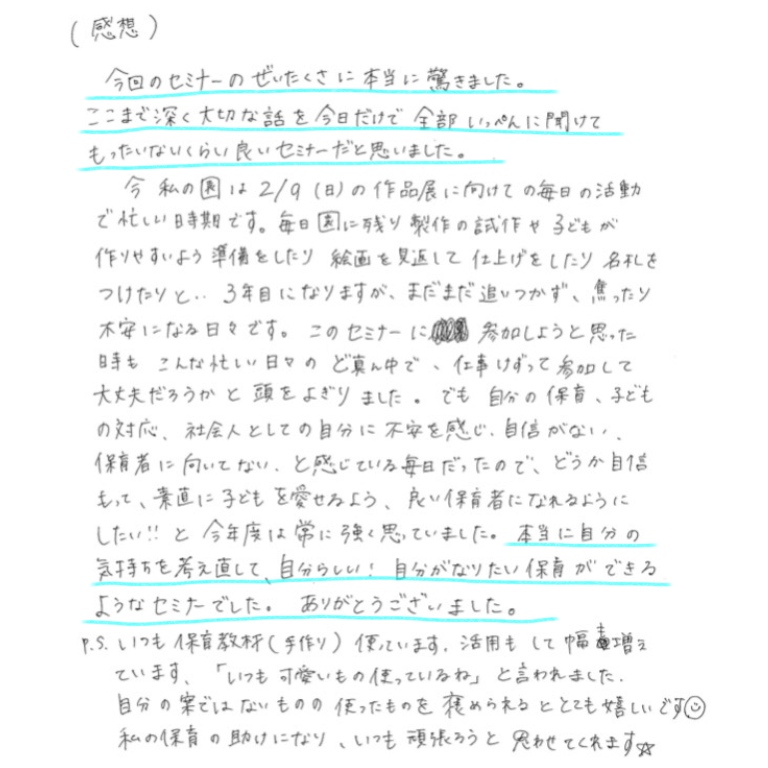 (感想)
今回のセミナーのぜいたくさに本当に驚きました。
ここまで深く大切な話を今日だけで全部いっぺんに聞けて
もったいないくらい良いセミナーだと思いました。
今私の園は2/9(日)の作品展に向けての毎日の活動
で忙しい時期です。毎日園に残り製作の試作や子どもが
作りやすいよう準備をしたり絵画を見返して仕上げをしたり名札を
つけたりと‥3年目になりますが、まだまだ追いつかず、焦ったり
不安になる日々です。このセミナーに参加しようと思った
時もこんな忙しい日々のど真ん中で、仕事けずって参加して
大丈夫だろうかと頭をよぎりました。でも自分の保育、子ども
の対応、社会人としての自分に不安を感じ、自信がない、
保育者に向いてない、と感じている毎日だったので、どうか自信
もって、素直に子どもを愛せるよう、良い保育者になれるように
したい!!と今年度は常に強く思っていました。本当に自分の
気持ちを考え直して、自分らしい!自分がなりたい保育ができる
ようなセミナーでした。ありがとうございました。
P.S.いつも保育教材(手作り)使っています。活用もして幅増え
ています、「いつも可愛いもの使っているね」と言われました.
自分の案ではないものの使ったものを褒められるととても嬉しいです☺
私の保育の助けになり、いつも頑張ろうと思わせてくれます☆